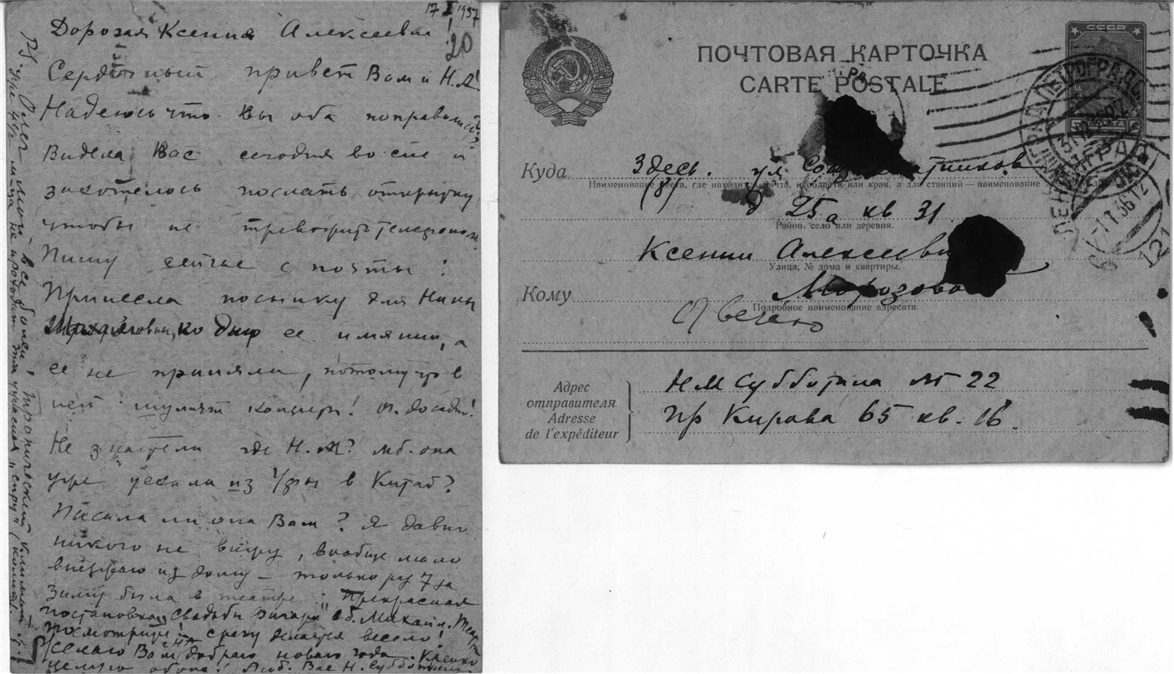 17 I 1937
20
Дорогая Ксения Алексеевна!
Сердечный привет Вам и Н.А!
Надеюсь что Вы оба поправились?
Видела Вас сегодня во сне и
захотелось послать открытку
чтобы не тревожить телефоном.
Пишу сейчас с почты!
Принесла посылку для Нины
ко дню ее имянин, а
ее не приняли, потому что в
ней концерт! досадно!
Не знаете ли где Н. ? мб. она
уже уехала из в Китай?
Писала ли она Вам? Я давно
никого не вижу, вообще мало
выезжаю из дому – только раз за
зиму была в театре: Прекрасная
постановка „Свадьбы Фигаро" в б. Михайл. театре
Посмотрите – сразу делается весело!
Желаю Вам доброго нового года. Крепко
целую обоих! Люб. Вас Н. Субботина
PS. Олег мой все болеет, тропический климат –
уже
СССР
ПОЧТОВАЯ КАРТОЧКА
CARTE POSTALE
Куда
Здесь. ул
Наименование места, где находится почта, и области или края, а для станций — наименование
д 25а кв 31
Район, село или деревня.
Ксении Алексеевне
Улица, № дома и квартиры.
Кому
Морозовой
Подробное наименование адресата.
Адрес
отправителя
Adresse
de l'expéditeur
Н М Субботина 22
пр Кирова 65 кв. 16.
ЛЕНИНГРАД